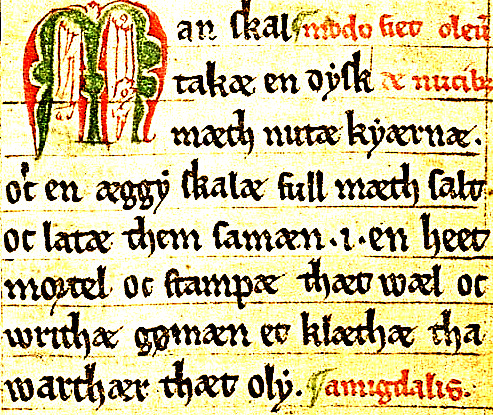 Man skal modo fiet oleū
takæ en dysk de nucibꝫ
mæth nutæ kyærnæ.
oc en æggy skalæ full mæth salt
oc latæ them samæn .i. en heet
mortel oc stampæ thæt wæl oc
writhæ gømæn et klæthæ tha
warthær thæt oly. amigdalis.